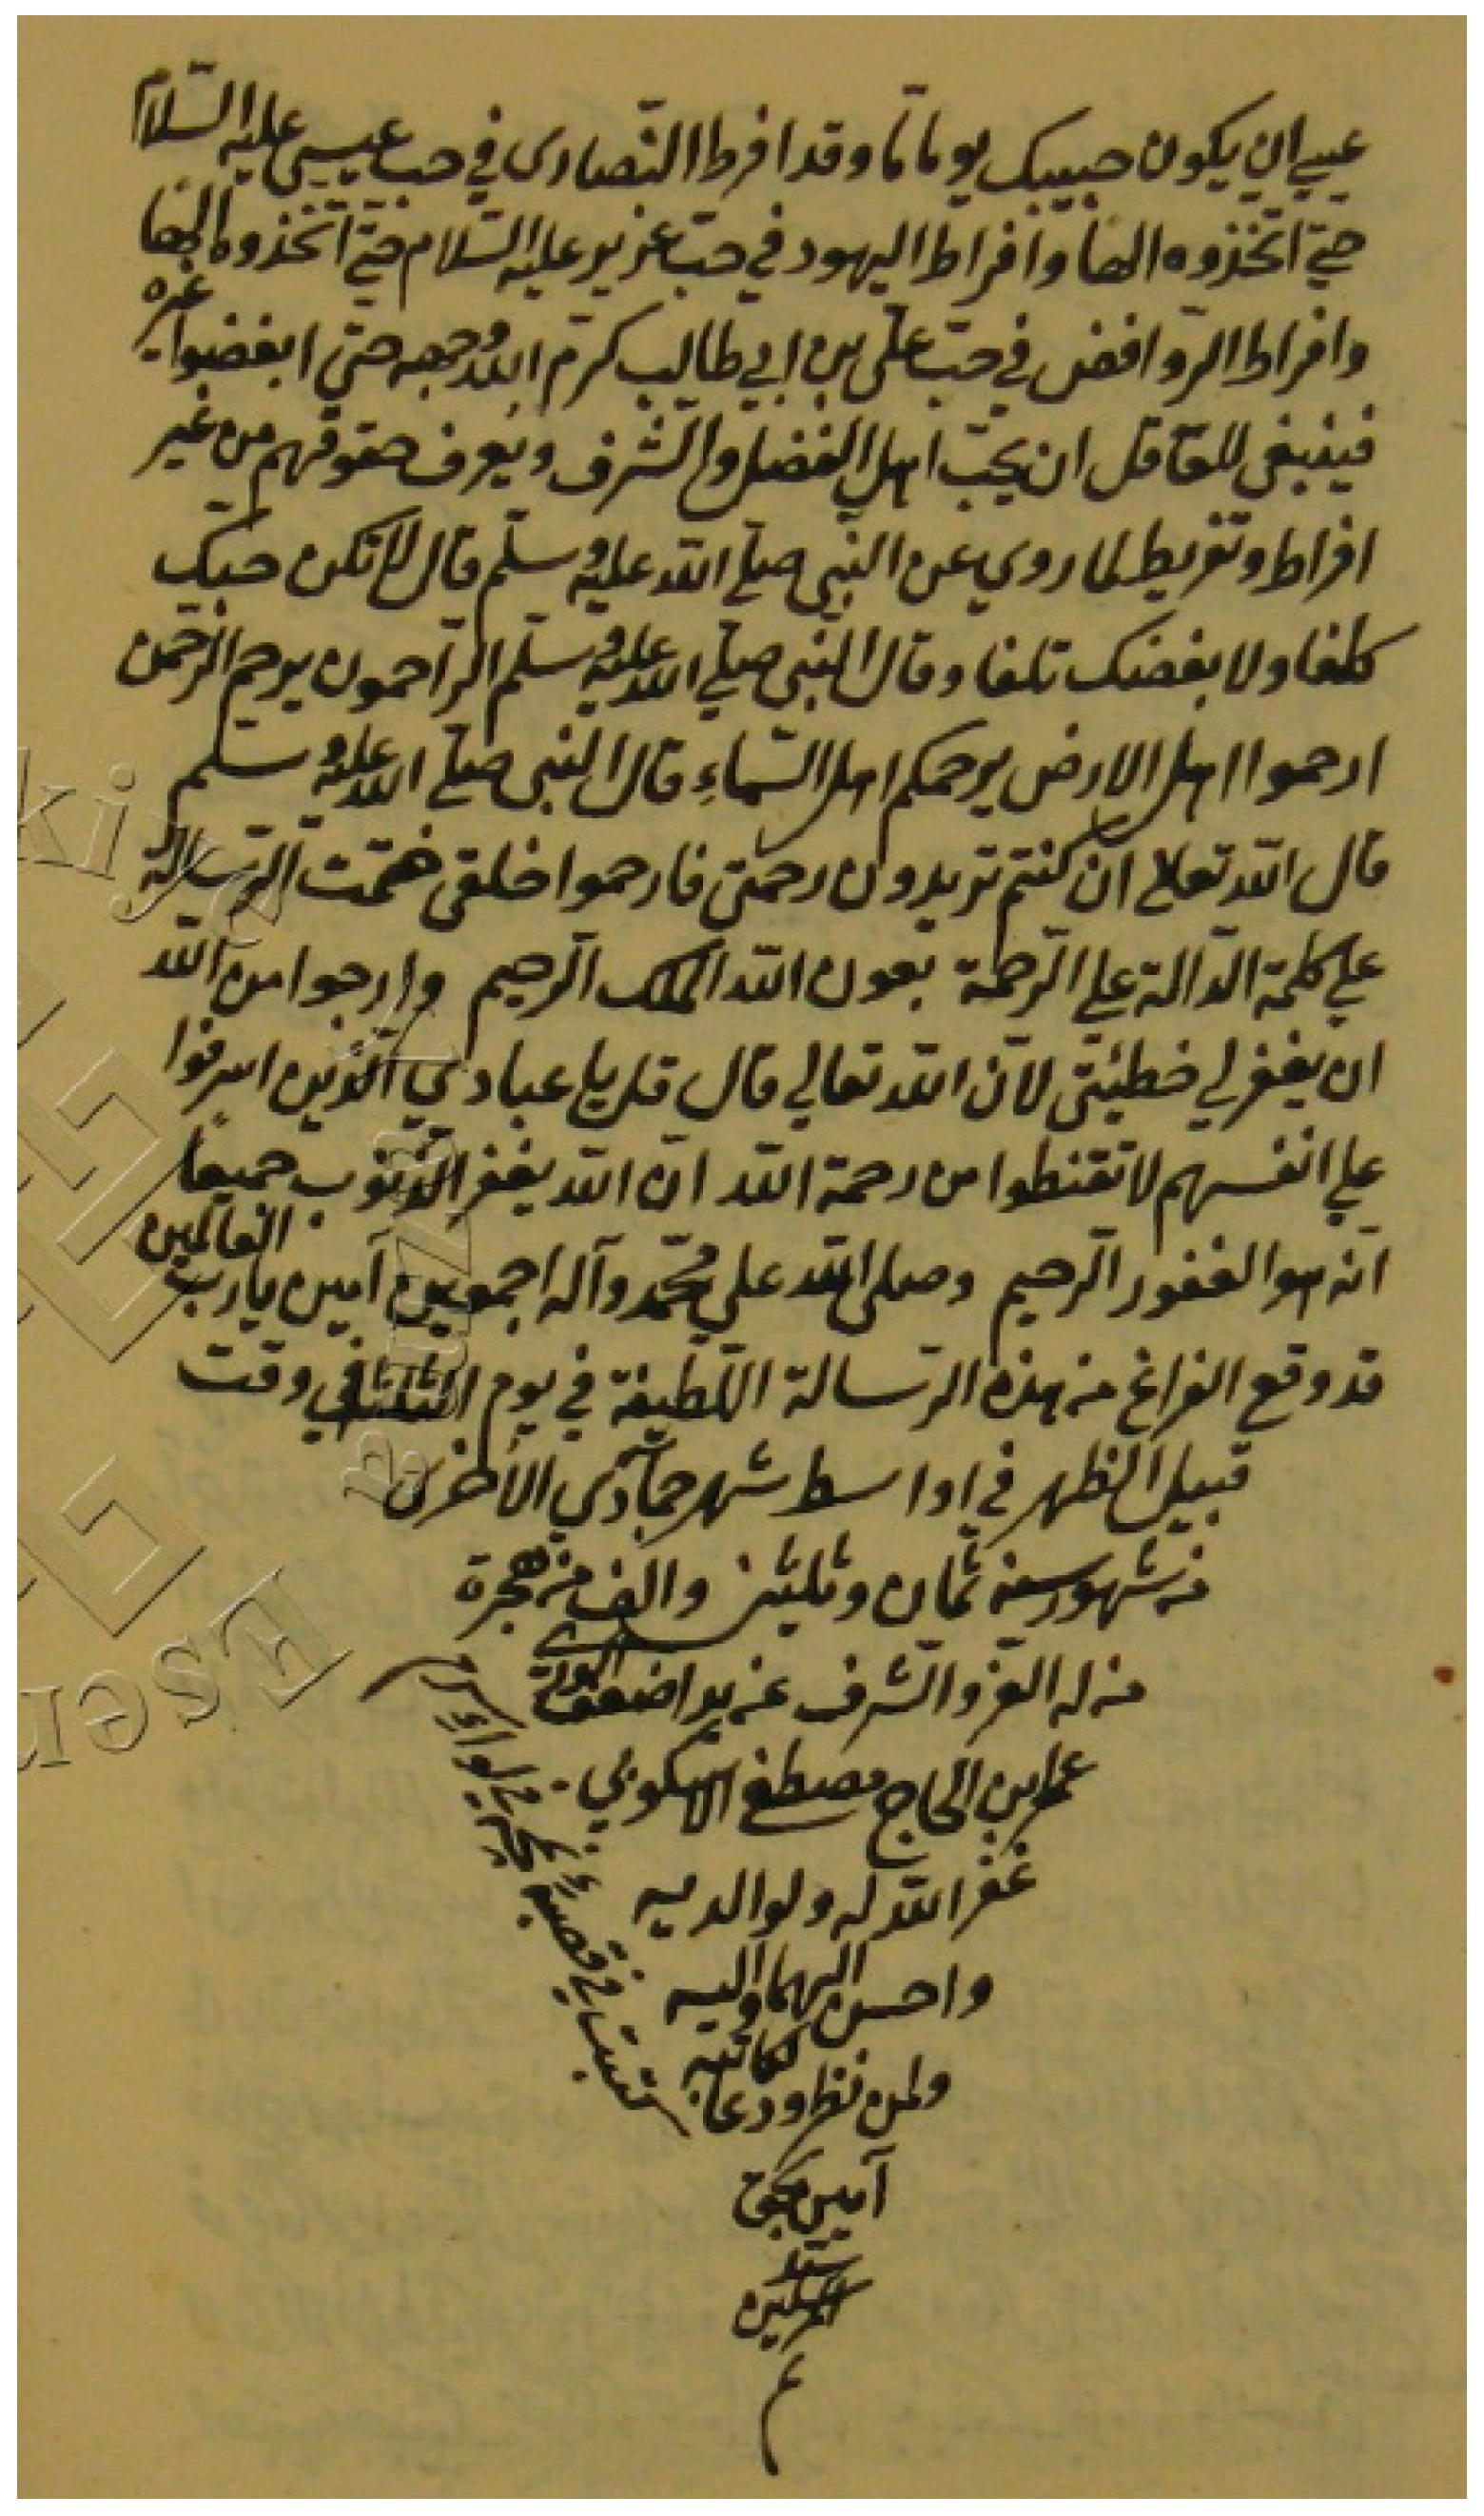 عسي ان يكون حبيبك يوما ما وقد افرط النصارى في حب عيسى عليه السلام
حتي اتخذوه الها وافراط اليهود في حب عزير عليه السلام حتي اتخذوه الها
وافراط الروافض في حب على بن ابي طالب كرم الله وجهه حتى ابغضوا غيره
فينبغى للعاقل ان يحب اهل الفضل والشرف ويعرف حقوقهم من غير
افراط وتفريط لما روي عن النبى صلى الله عليه وسلم قال لا تكن حبك
كلفا ولا بغضك تلفا وقال النبى صلى الله عليه وسلم الراحمون يرحم الرحمن
ارحموا اهل الارض يرحمكم اهل السماء قال النبى صلى الله عليه وسلم
قال الله تعالى ان كنتم تريدون رحمتى فارحموا خلقى ختمت الرسالة
علي كلمة الدالة علي الرحمة بعون الله الملك الرحيم وارجوا من الله
ان يغفر لي خطيئتى لان الله تعالي قال قل يا عبادي الذين اسرفوا
علي انفسهم لا تقنطوا من رحمة الله ان الله يغفر الذنوب جميعا
انه هو الغفور الرحيم وصلى الله علي محمد وآله اجمعين آمين يا رب العالمين
قد وقع الفراغ من هذه الرسالة اللطيفة في يوم الثلثا في وقت
قبيل الظهر في اواسط شهر جمادي الاخرى
من شهور سنه ثمان وثلثين والف من هجرة
من له العز والشرف عن يد اضعف الورى
عمر بن الحاج مصطفى الاسكوبي
غفر الله له ولوالديه
واحسن اليهما واليه
ولمن نظر ودعا لكاتبه
آمين بحق
سيد
المرسلين
م
كتبت في قصبه